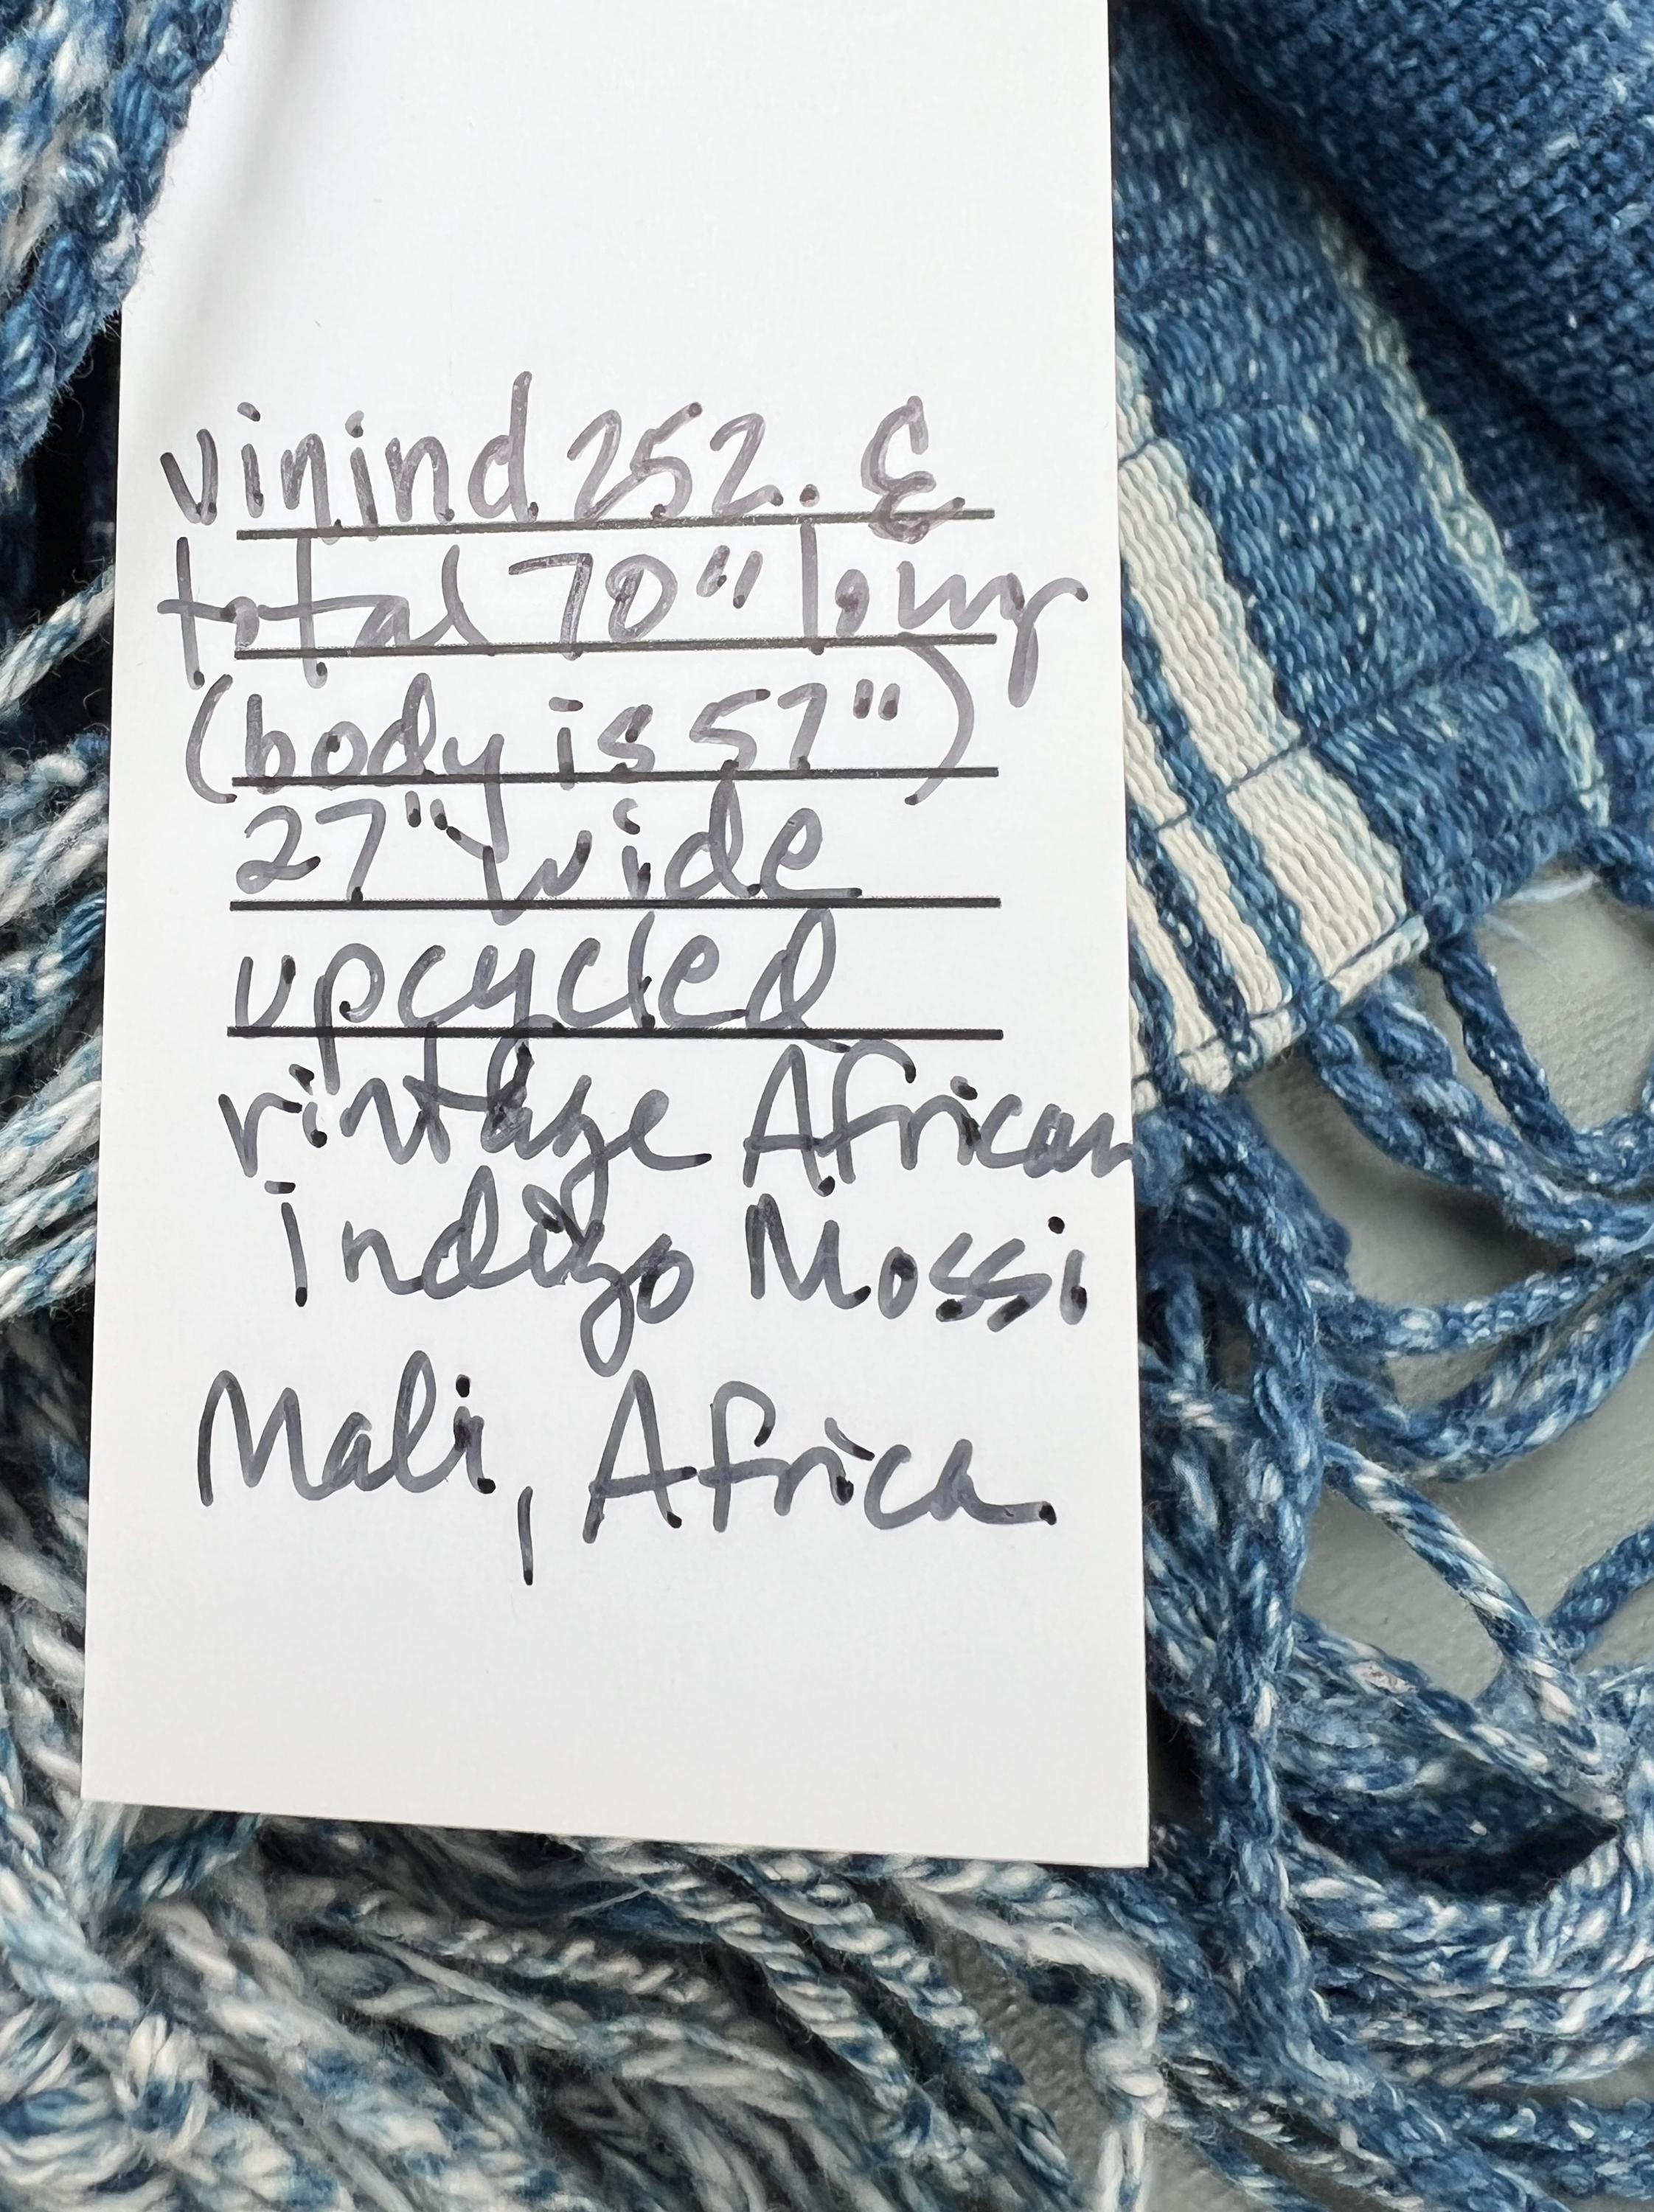 vinind 252. &
total 70" long
(body is 57")
27" wide
upcycled
vintage African
indigo Mossi
Mali, Africa